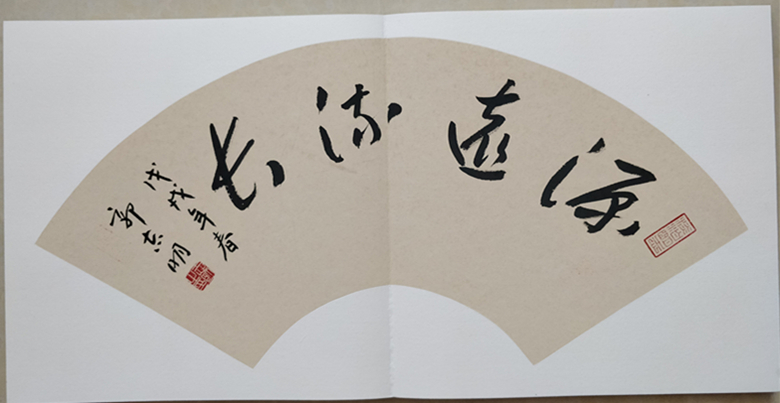 源遠流长
戊戌年春
郭志明